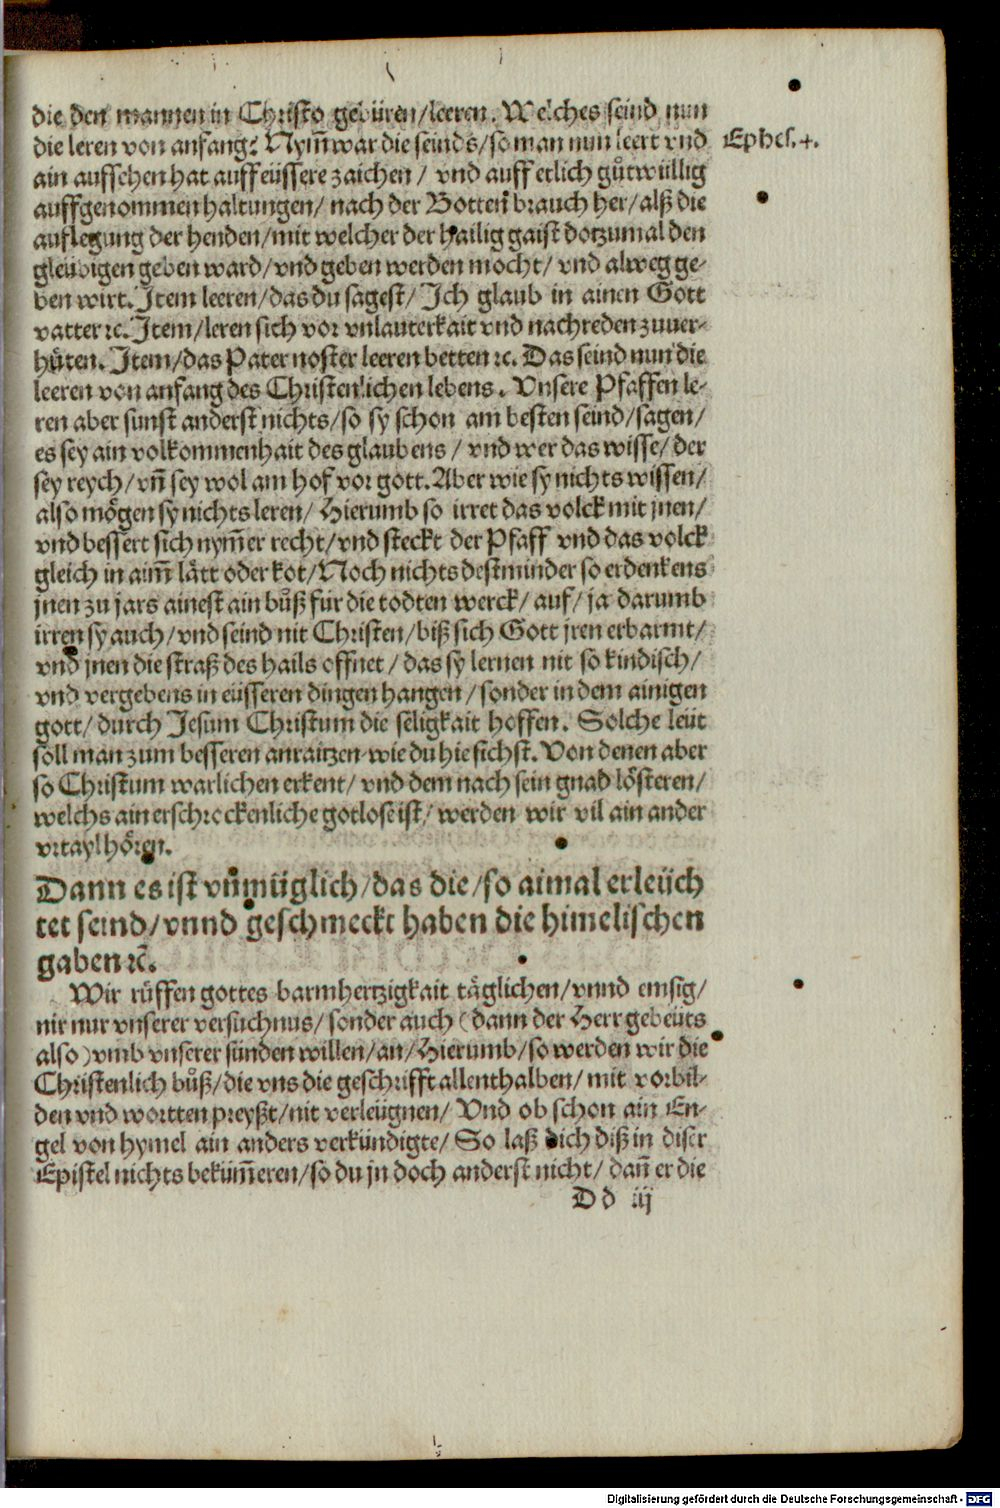 die den mannen in Christo gebüren/leeren. Welches seind nun
die leren von anfang? Nym̄ war die seinds/so man nun leert vnd
Ephes. 4.
ain auffsehen hat auff eüssere zaichen/ vnd auff etlich gůtwillig
auffgenommen haltungen/ nach der Botten brauch her/ alß die
auflegung der henden/mit welcher der hailig gaist dotzumal den
gleubigen geben ward/vnd geben werden mocht/ vnd alweg ge-
ben wirt. Item leeren/das du sagest/ Ich glaub in ainen Gott
vatter ꝛc. Item/leren sich vor vnlauterkait vnd nachreden zuuer-
hüten. Item/das Pater noster leeren betten ꝛc. Das seind nun die
leeren von anfang des Christenlichen lebens. Vnsere Pfaffen le-
ren aber sunst anderst nichts/so sy schon am besten seind/sagen/
es sey ain volkommenhait des glaubens/ vnd wer das wisse/ der
sey reych/ vn̄ sey wol am hof vor gott. Aber wie sy nichts wissen/
also mögen sy nichts leren/ Hierumb so irret das volck mit jnen/
vnd bessert sich nym̄er recht/vnd steckt der Pfaff vnd das volck
gleich in aim̄ lätt oder kot/Noch nichts destminder so erdenkens
jnen zu jars ainest ain bůß für die todten werck/ auf/ ja darumb
irren sy auch/vnd seind nit Christen/biß sich Gott jren erbarmt/
vnd jnen die straß des hails offnet/ das sy lernen nit so kindisch/
vnd vergebens in eüsseren dingen hangen/sonder in dem ainigen
gott/ durch Jesum Christum die seligkait hoffen. Solche leüt
soll man zum besseren anraitzen wie du hie sichst. Von denen aber
so Christum warlichen erkent/ vnd dem nach sein gnad lösteren/
welchs ain erschrockenliche gotlose ist/ werden wir vil ain ander
vrtayl hören.
Dann es ist vnmüglich/das die/so aimal erleüch
tet seind/vnnd geschmeckt haben die himelischen
gaben ꝛc̄.
Wir rüffen gottes barmhertzigkait täglichen/vnnd emsig/
nit nur vnserer versuchnus/sonder auch (dann der Herr gebeüts
also) vmb vnserer sünden willen/an/Hierumb/so werden wir die
Christenlich bůß/die vns die geschrifft allenthalben/mit vorbil-
den vnd wortten preyßt/nit verleügnen/ Vnd ob schon ain En-
gel von hymel ain anders verkündigte/ So laß dich diß in diser
Epistel nichts beküm̄eren/so du jn doch anderst nicht/ dan̄ er die
Dd iij
Digitalisierung gefördert durch die Deutsche Forschungsgemeinschaft - DFG